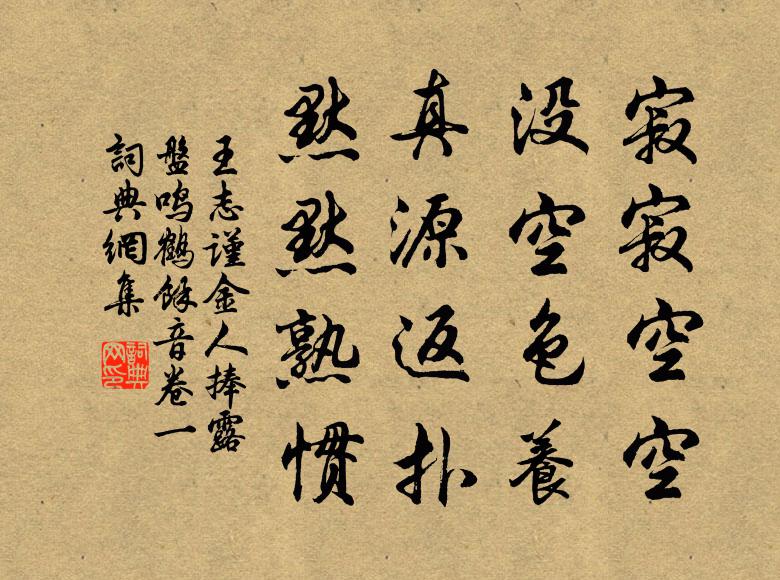 寂寂空空
没空色養
真源返扑
黙黙熟慣
王志謹金人捧露
盤鳴鶴餘音卷一
詞典網集
詞典網印